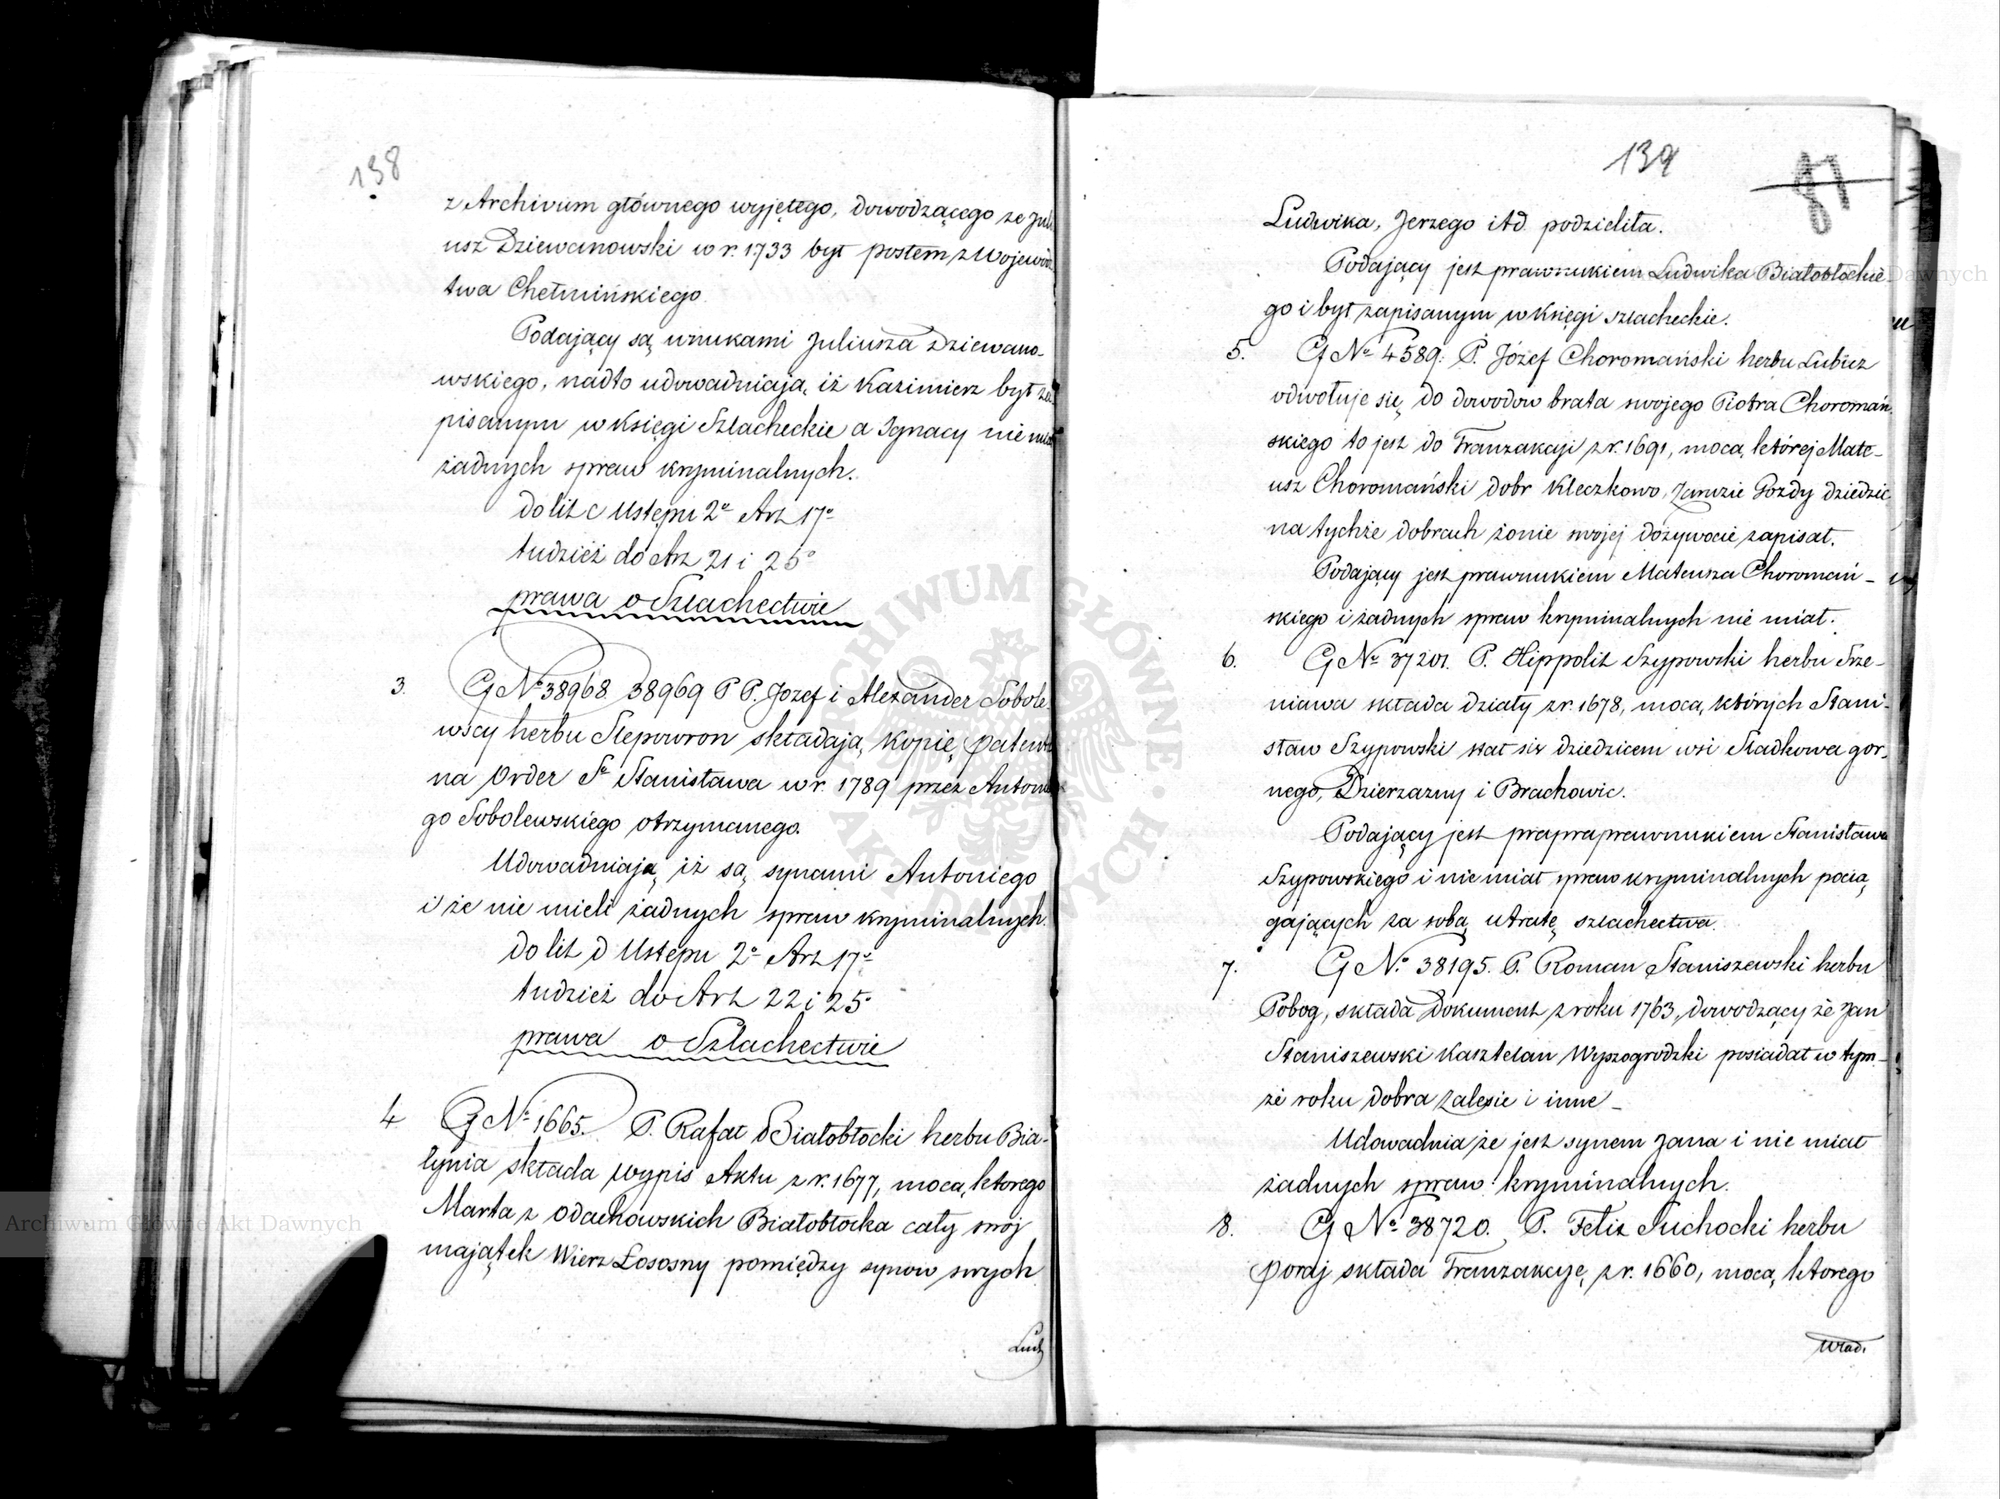 138
z Archivum głównego wyjętego, dowodzącego że Juli
usz Dziewanowski w r. 1733 był posłem z Wojewódz
twa Chełmińskiego.
Podający są wnukami Juliusza Dziewano-
wskiego, nadto udowadniają, iż Kazimierz był za
pisanym w Księgi Szlacheckie a Ignacy nie miał
żadnych spraw kryminalnych.
do lit c Ustępu 2º Art 17º
tudzież do Art 21 i 25º
prawa o Szlachectwie
3. G Nº 38968 38969 P P. Jozef i Alexander Sobole
wscy herbu Slepowron składają, kopię, patentu
na Order Sº Stanisława w r. 1789 przez Antonie
go Sobolewskiego otrzymanego.
Udowadniają, iż są, synami Antoniego
i że nie mieli żadnych spraw kryminalnych.
do lit d Ustępu 2º Art 17º
tudzież do Art 22 i 25º
prawa o Szlachectwie
4 G Nº 1665. P. Rafał Białobłocki herbu Bia-
łynia składa wypis Aktu z r. 1677, mocą, ktorego
Marta z Odachowskich Białobłocka cały swój
majątek Wierz Łososny pomiędzy synow swych
Lud
139
81
Ludwika, Jerzego itd podzieliła.
Podający jest prawnukiem Ludwika Białobłockie
go i był zapisanym w Księgi szlacheckie.
5. G Nº 4589: P. Józef Choromański herbu Lubicz
odwołuje się, do dowodow brata swojego Piotra Choromań
skiego to jest do Tranzakcji z r. 1691, mocą, której Mate-
usz Choromański dobr Kleczkowo, Gozdy dziedzic
na tychże dobrach żonie swojej dożywocie zapisał.
Podający jest prawnukiem Mateusza Choromań-
skiego i żadnych spraw kryminalnych nie miał.
6. G Nº 37201. P. Hippolit Szypowski herbu Srze-
niawa składa działy z r. 1678, mocą, których Stani-
sław Szypowski stał się dziedzicem wsi Sladkowa gor-
nego, Dzierzazny i Brachowic.
Podający jest prapraprawnukiem Stanisława
Szypowskiego i nie miał spraw kryminalnych pocią,
gających za sobą, utratę, szlachectwa.
7. G Nº 38195. P. Roman Staniszewski herbu
Pobog, składa Dokument z roku 1763, dowodzący że Jan
Staniszewski Kasztelan Wyszogrodzki posiadał w tym-
że roku dobra Zalesie i inne -
Udowadnia że jest synem Jana i nie miał
żadnych spraw kryminalnych.
8. G Nº 38720. P. Felix Suchocki herbu
Poraj składa Tranzakcyę, z r. 1660, mocą, ktorego
Wład.
ARCHIWUM GŁÓWNE AKT DAWNYCH
Archiwum Główne Akt Dawnych